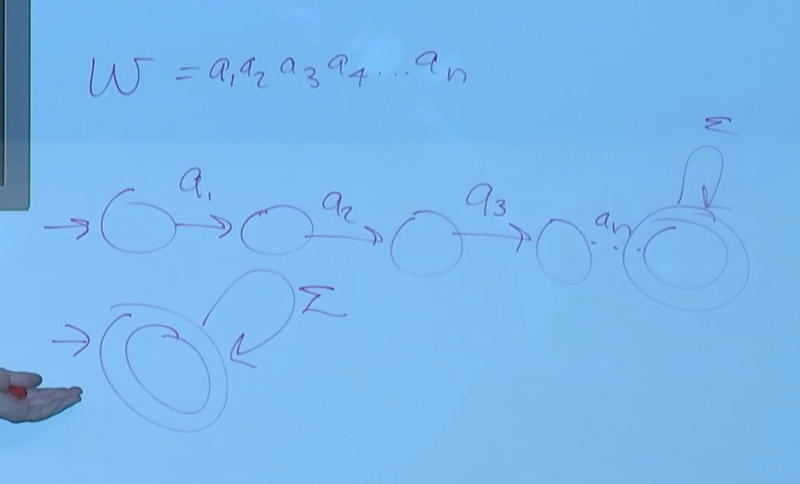 W = a₁a₂ a₃ a₄ ... aₙ
Σ
a₁ a₂ a₃ aₙ
Σ